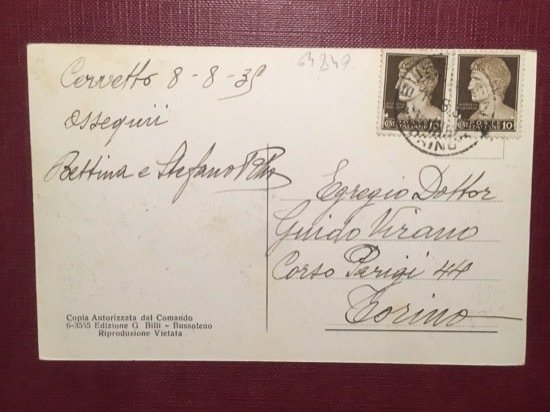 64847
Cervetto 8-8-35
Ossequii
Bettina e Stefano
Egregio Dottor
Guido Virano
Corso Parigi 44
Torino
Copia Autorizzata dal Comando
6-3535 Edizione G Billi - Bussoleno
Riproduzione Vietata
POSTE ITALIANE
CENT 10
POSTE ITALIANE
CENT 10